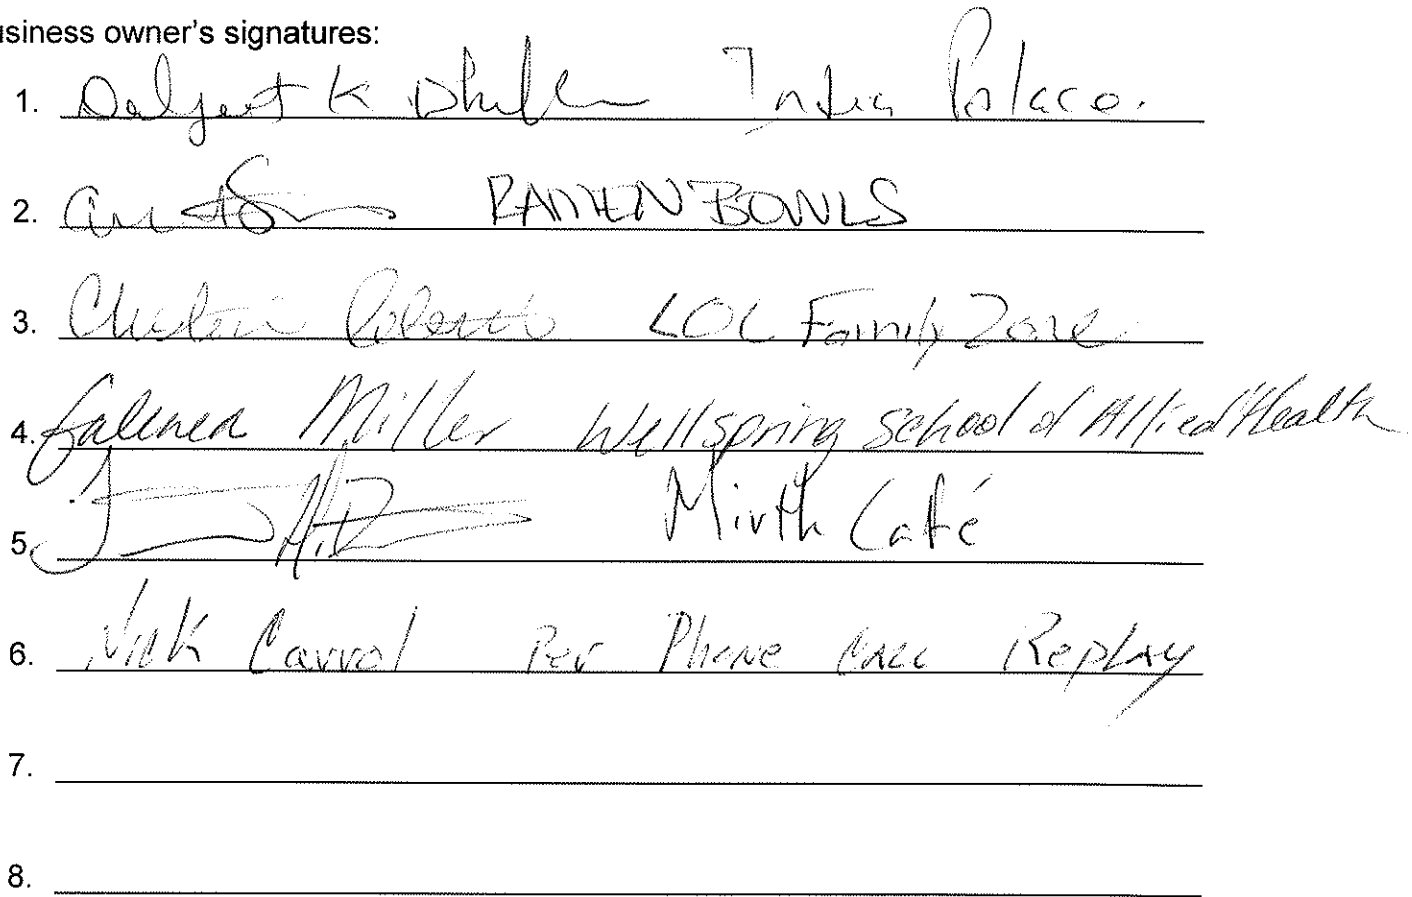 usiness owner's signatures:
1. Daljeet K Dhillon India Palace.
2. RAMEN BOWLS
3. LOL Family Zone
4. Miller Wellspring School of Allied Health
5. Mirth Café
6. Nick Carrol Per Phone Call Replay
7.
8.